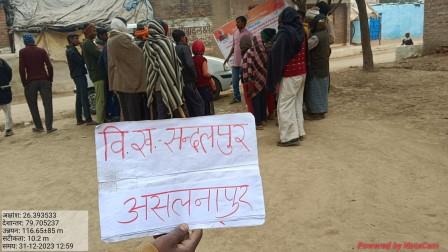 वि.ख. सन्दलपुर
असलनापुर
अक्षांश: 26.393533
देशान्तर: 79.705237
उन्नयन: 116.65±85 m
सटीकता: 10.2 m
समय: 31-12-2023 12:59
Powered by NoteCam